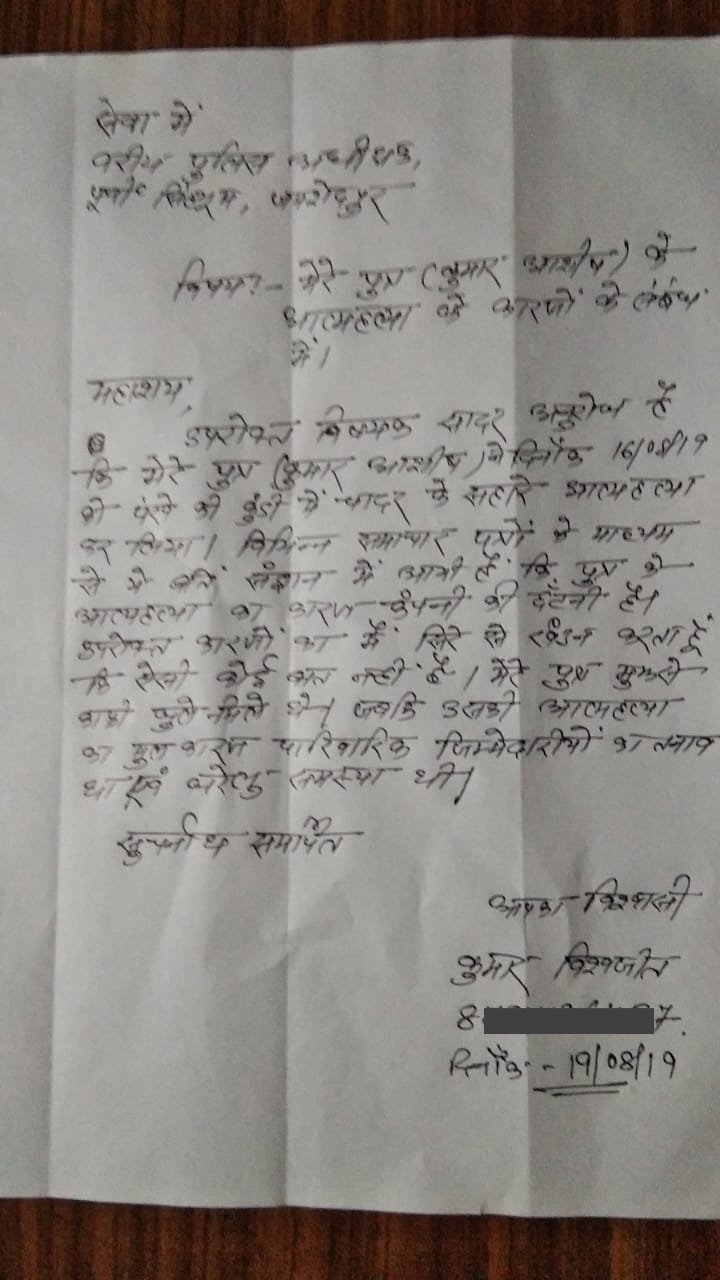 सेवा में
वरीय पुलिस अधीक्षक,
पूर्वी सिंहभूम, जमशेदपुर
विषय:- मेरे पुत्र (कुमार आशीष) के
आत्महत्या के कारणों के संबंध
में।
महाशय,
उपरोक्त विषयक सादर अनुरोध है
कि मेरे पुत्र (कुमार आशीष) ने दिनाँक 16/08/19
को पंखे की कुंडी में चादर के सहारे आत्महत्या
कर लिया। विभिन्न समाचार पत्रों के माध्यम
से ये बातें संज्ञान में आयी हैं कि पुत्र की
आत्महत्या का कारण कंपनी की छँटनी है।
उपरोक्त कारणों का मैं सिरे से खंडन करता हूँ
कि ऐसी कोई बात नहीं है। मेरे पुत्र मुझसे
काफी घुले मिले थे। जबकि उसकी आत्महत्या
का मुल कारण पारिवारिक जिम्मेदारीयों का तनाव
था एवं घरेलु समस्या थी।
सुचनार्थ समर्पित
आपका विश्वासी
कुमार विश्वजीत
8 7.
दिनाँक - 19/08/19